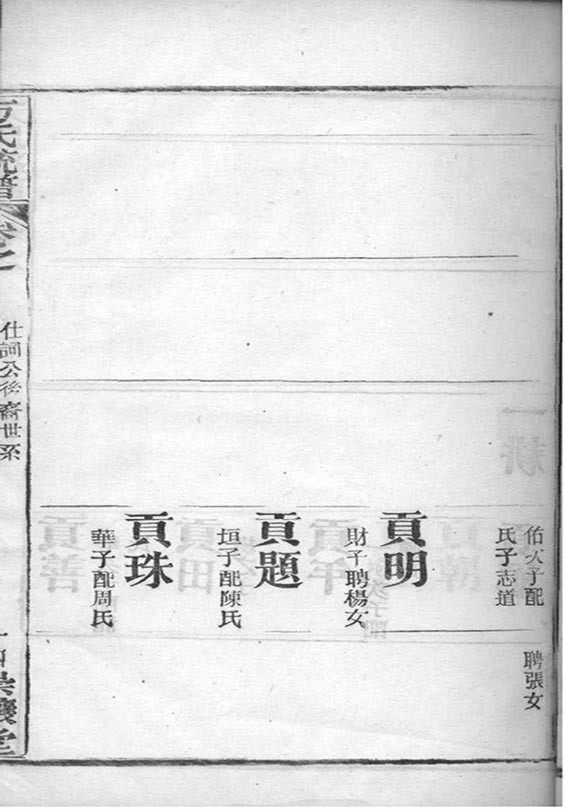 佑次子配
氏子志道
聘張女
貢明
財子聘楊女
貢題
垣子配陳氏
貢珠
華子配周氏
氏統譜
卷之
仕詞公後裔世系